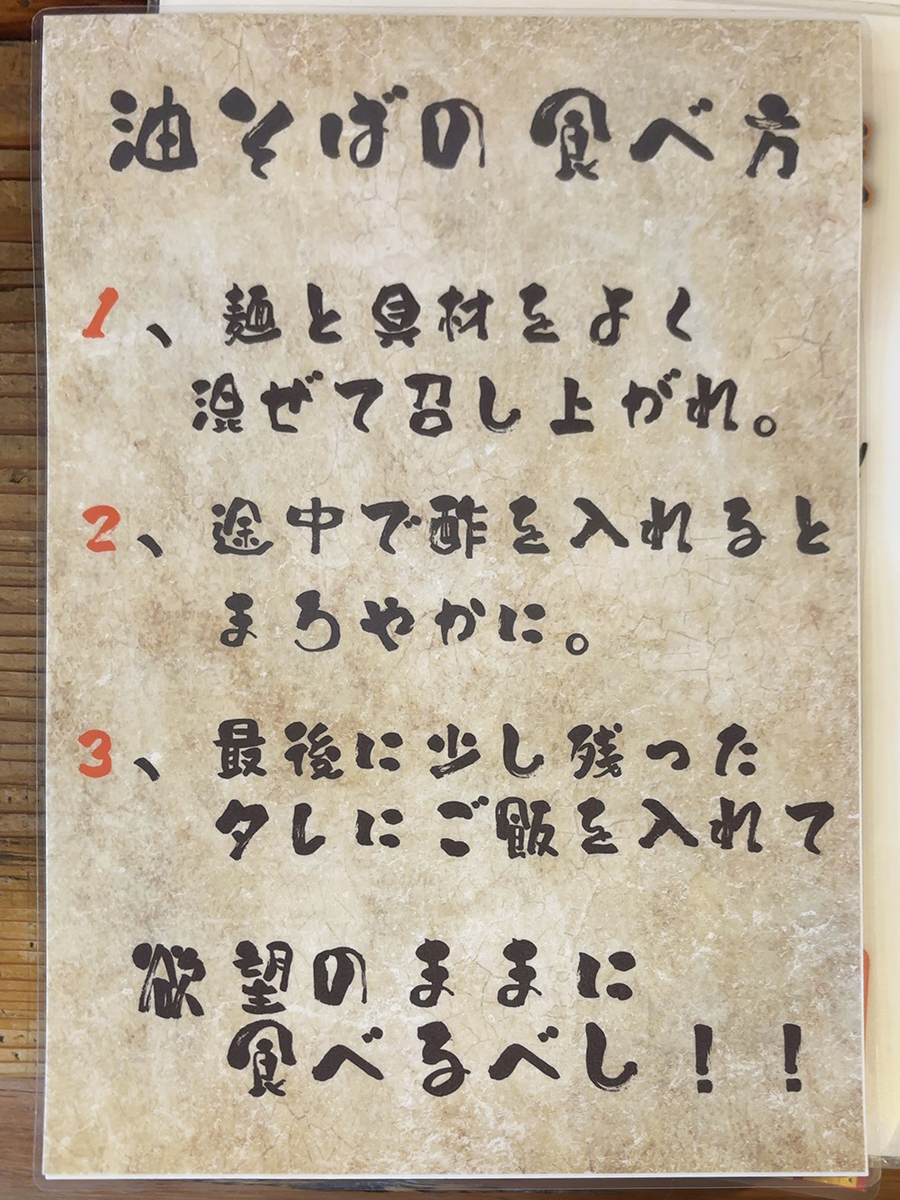 油そばの食べ方
1、麺と具材をよく
混ぜて召し上がれ。
2、途中で酢を入れると
まろやかに。
3、最後に少し残った
タレにご飯を入れて
欲望のままに
食べるべし！！